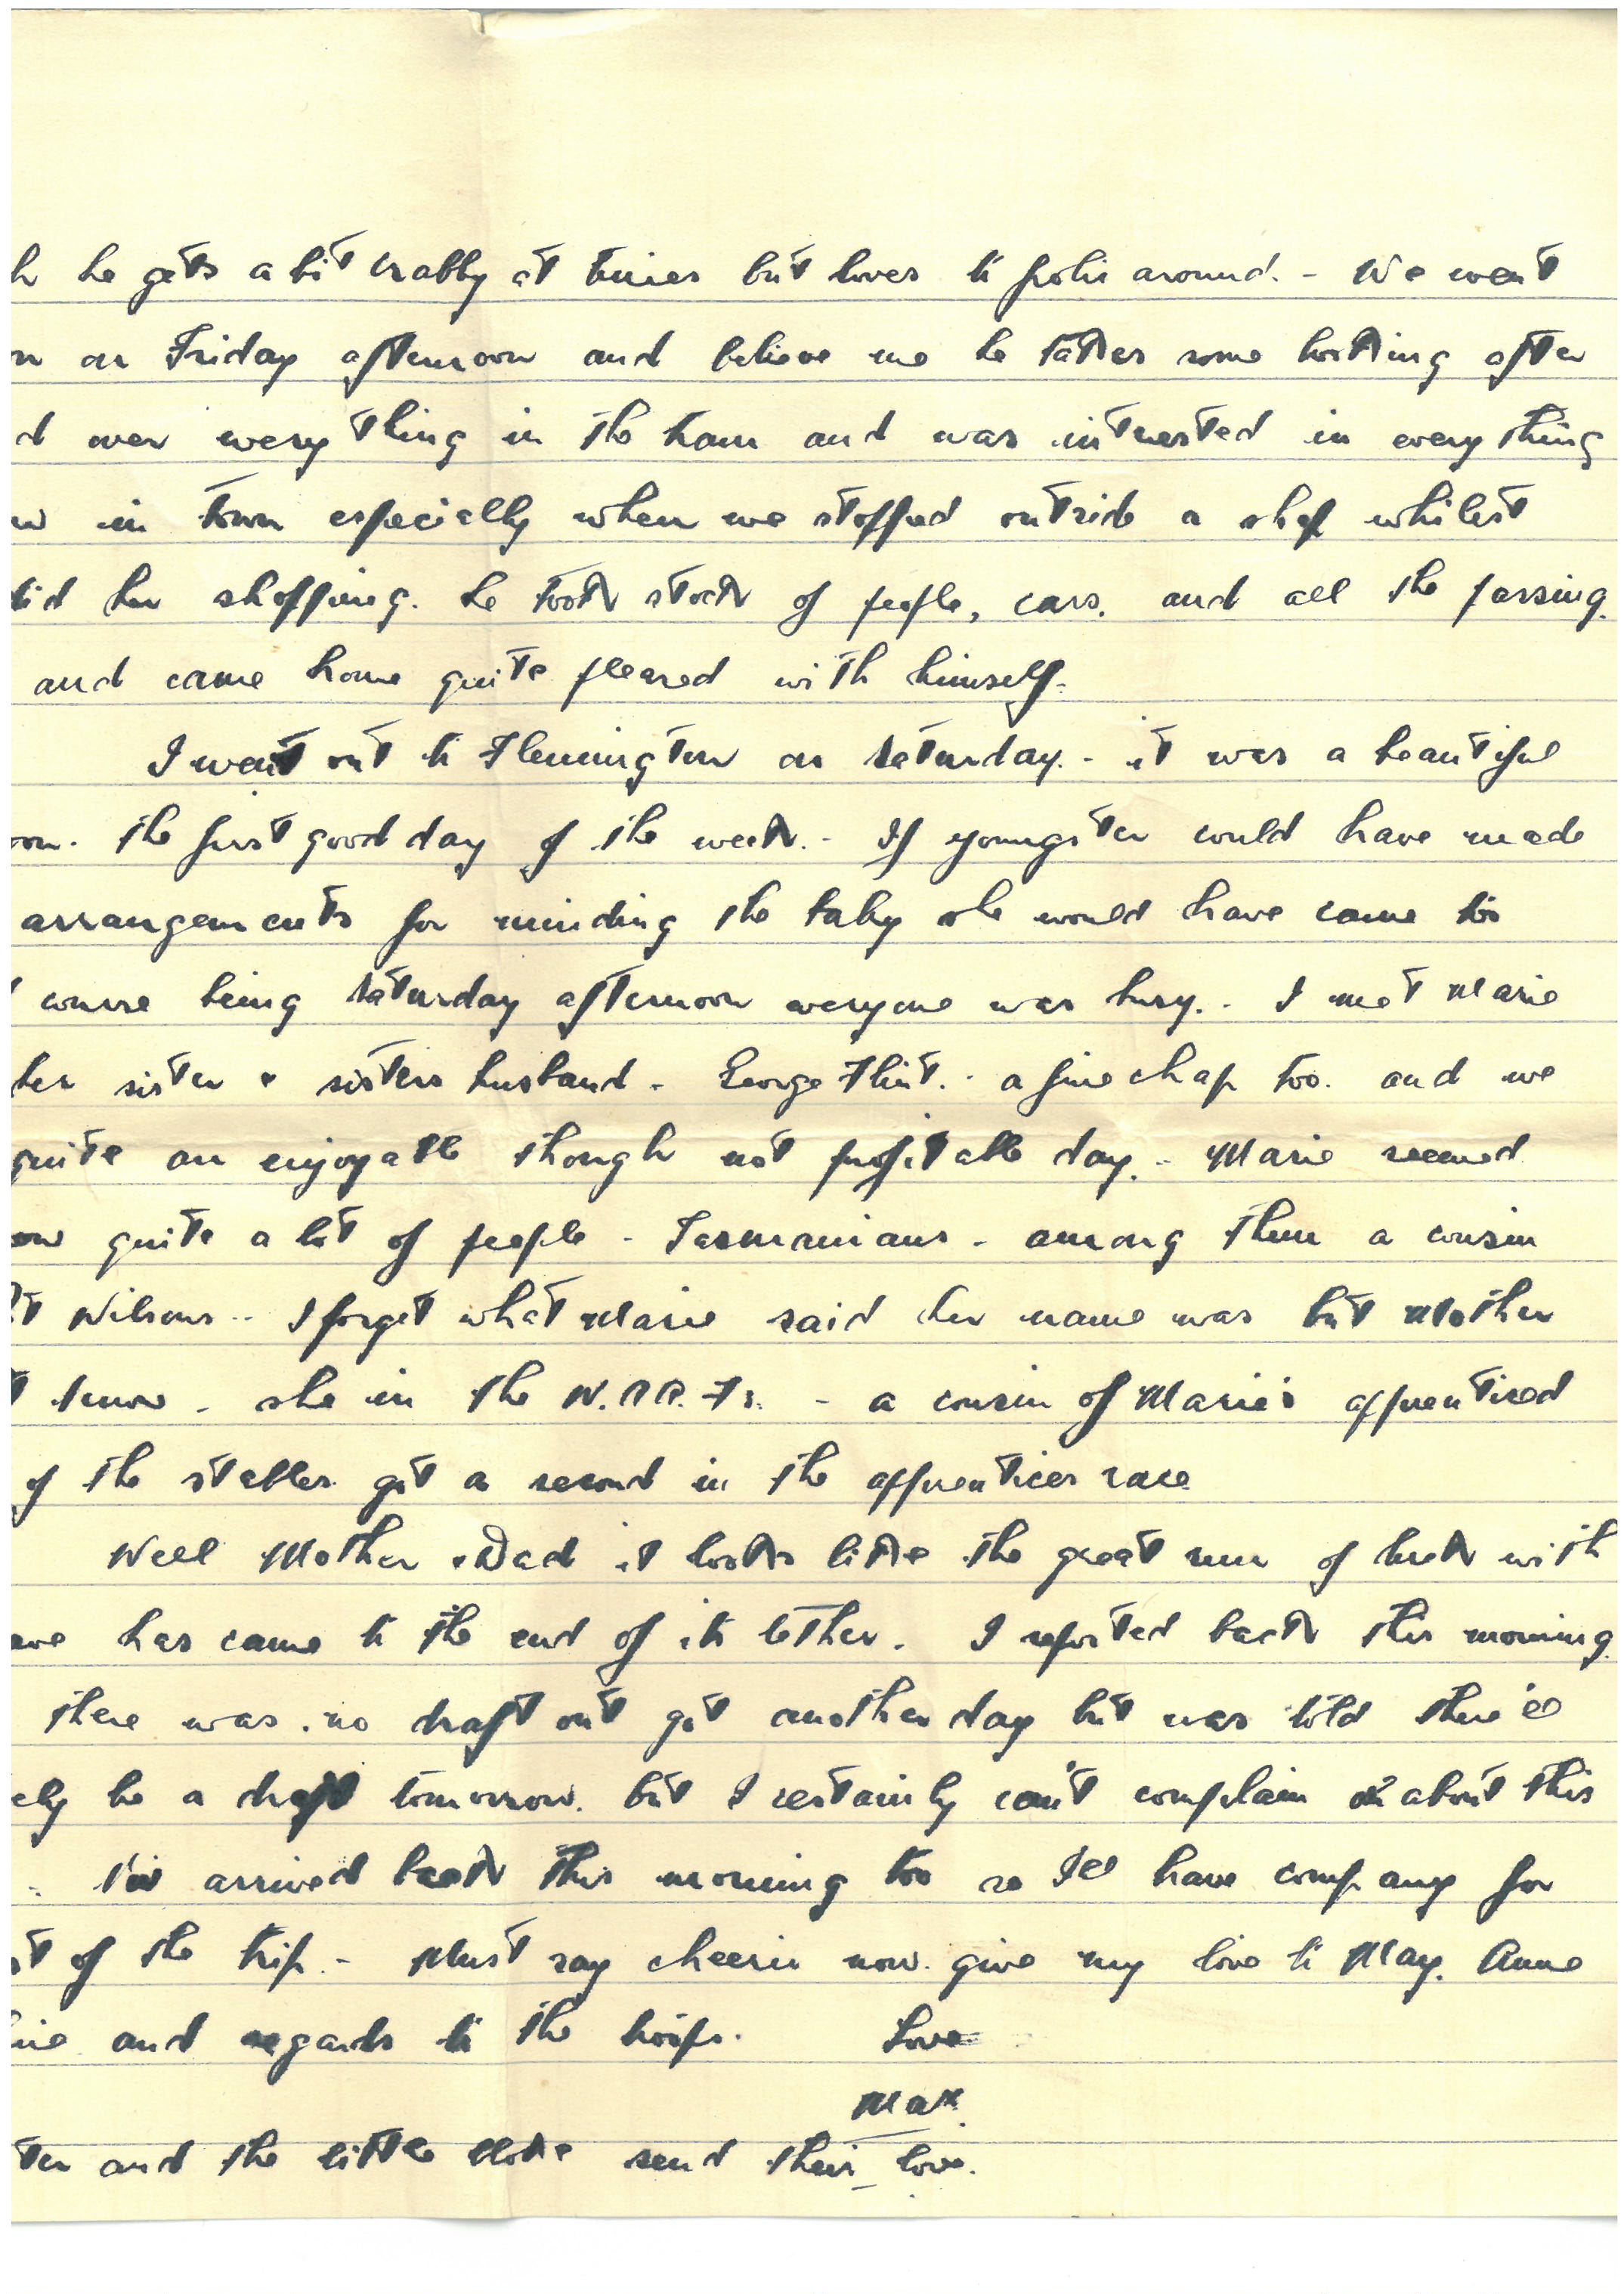 h he gets a bit crabby at times but loves to frolic around. - We went
n on Friday afternoon and believe me he takes some looking after
d over everything in the tram and was interested in everything
w in town especially when we stopped outside a shop whilst
did her shopping. he took stock of people, cars. and all the passing.
and came home quite pleased with himself.
I went out to Flemington on Saturday. - it was a beautiful
oon. the first good day of the week. - If youngster could have made
arrangements for minding the baby she would have came too
course being Saturday afternoon everyone was busy. - I met Marie
her sister & sisters husband - George Flint. - a fine chap too. and we
quite an enjoyable though not profitable day. - Marie seemed
ow quite a lot of people - Tasmanians - among them a cousin
t Wilsons - I forget what Marie said her name was but Mother
t know - she in the W.A.A.Fs. - a cousin of Marie's apprenticed
of the stables got a second in the apprentices race
Well Mother & Dad it looks like the great run of luck with
ave has came to the end of its tether. I reported back this morning.
there was no draft out got another day but was told there'll
ely be a draft tomorrow. but I certainly can't complain about this
- arrived back this morning too so I'll have company for
st of the trip. - Must say cheerio now. give my love to May. Anne
ie and regards to the troops. Love
Max.
ter and the little bloke send their love.